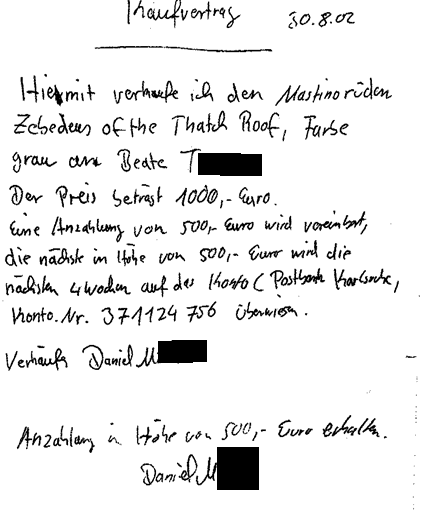 Kaufvertrag 30.8.02
Hiermit verkaufe ich den Mastinorüden
Zebedeus of the Thatch Roof, Farbe
grau an Beate T
Der Preis beträgt 1000,- Euro.
Eine Anzahlung von 500,- Euro wird vereinbart,
die nächste in Höhe von 500,- Euro wird die
nächsten 4 Wochen auf das Konto (Postbank Karlsruhe,
Konto.Nr. 371124 756 überwiesen.
Verkäufer Daniel M
Anzahlung in Höhe von 500,- Euro erhalten.
Daniel M